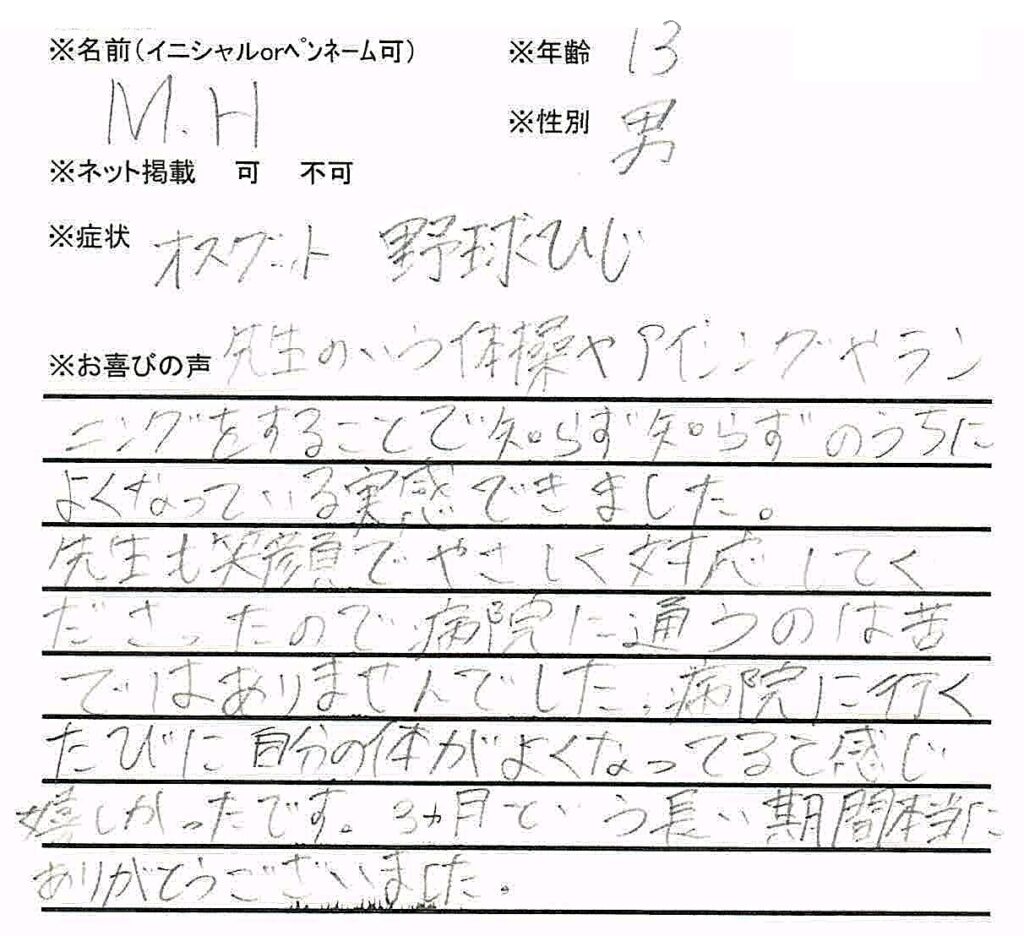 ※名前(イニシャルorペンネーム可) ※年齢 13
M.H ※性別 男
※ネット掲載 可 不可
※症状 オスグット 野球ひじ
※お喜びの声 先生のいう体操やアイシングやラン
ニングをすることで知らず知らずのうちに
よくなっている実感できました。
先生も笑顔でやさしく対応してく
ださったので病院に通うのは苦
ではありませんでした。病院に行く
たびに自分の体がよくなってると感じ
嬉しかったです。3ヵ月という長い期間本当に
ありがとうございました。